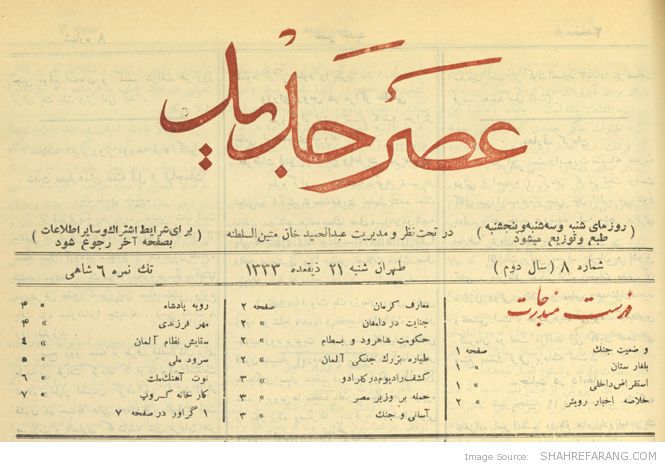 عصر جدید
( روزهای شنبه و سه شنبه و پنجشنبه
طبع و توزیع میشود )
در تحت نظر و مدیریت عبدالحمید خان متین‌السلطنه
( برای شرایط اشتراك و سایر اطلاعات
بصفحه آخر رجوع شود )
شماره ۸ ( سال دوم )
طهران شنبه ۲۱ ذیقعده ۱۳۳۳
تك نمره ۶ شاهی
فهرست مندرجات
وضعیت جنك صفحه ۱
بلغارستان » ۱
استقراض داخلی » ۱
خلاصه اخبار رویتر » ۲
معارف کرمان صفحه ۲
جنایت در دامغان » ۲
حکومت شاهرود و بسطام » ۲
طیاره بزرك جنگی آلمان » ۲
کشف رادیوم در کلرادو » ۳
حمله بر وزیر مصر » ۳
آسانی و جنك » ۳
رویه پادشاه » ۴
مهر فرزندی » ۴
ستایش نظام آلمان » ۴
سرود ملی » ۵
نوت آهنك ملت » ۶
کارخانه کروپ » ۷
۱ گراور در صفحه ۷
Image Source: SHAHREFARANG.COM